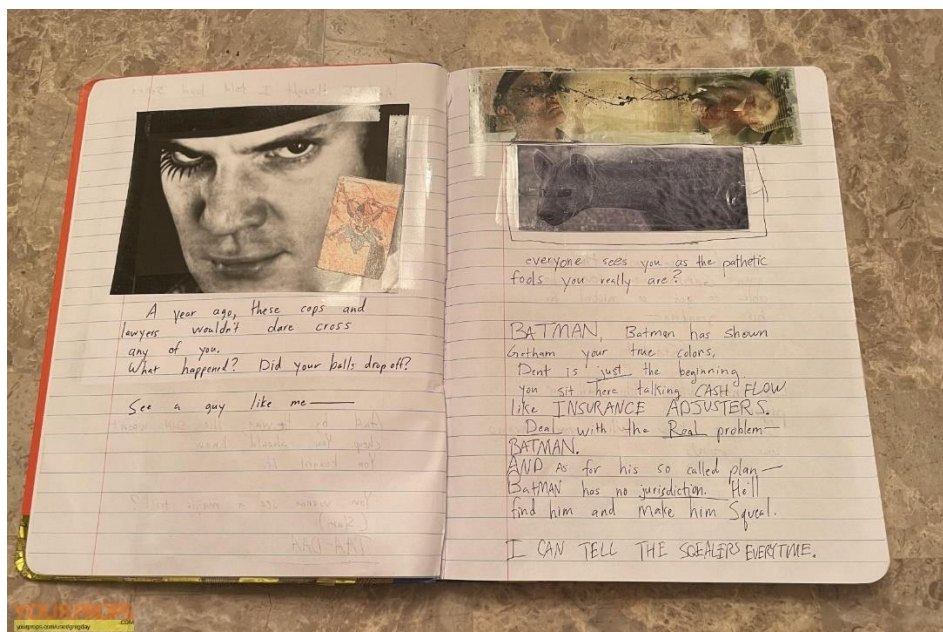 A year ago, these cops and
lawyers wouldn't dare cross
any of you.
What happened? Did your balls drop off?
See a guy like me—
everyone sees you as the pathetic
fools you really are?
BATMAN, Batman has shown
Gotham your true colors.
Dent is just the beginning.
you sit here talking CASH FLOW
like INSURANCE ADJUSTERS.
Deal with the Real problem—
BATMAN.
AND As for his so called plan—
BatMAN has no jurisdiction. He'll
find him and make him Squeal.
I CAN TELL THE SQEALERS EVERYTIME.
YOURPROPS
.COM
yourprops.com/user/gregday